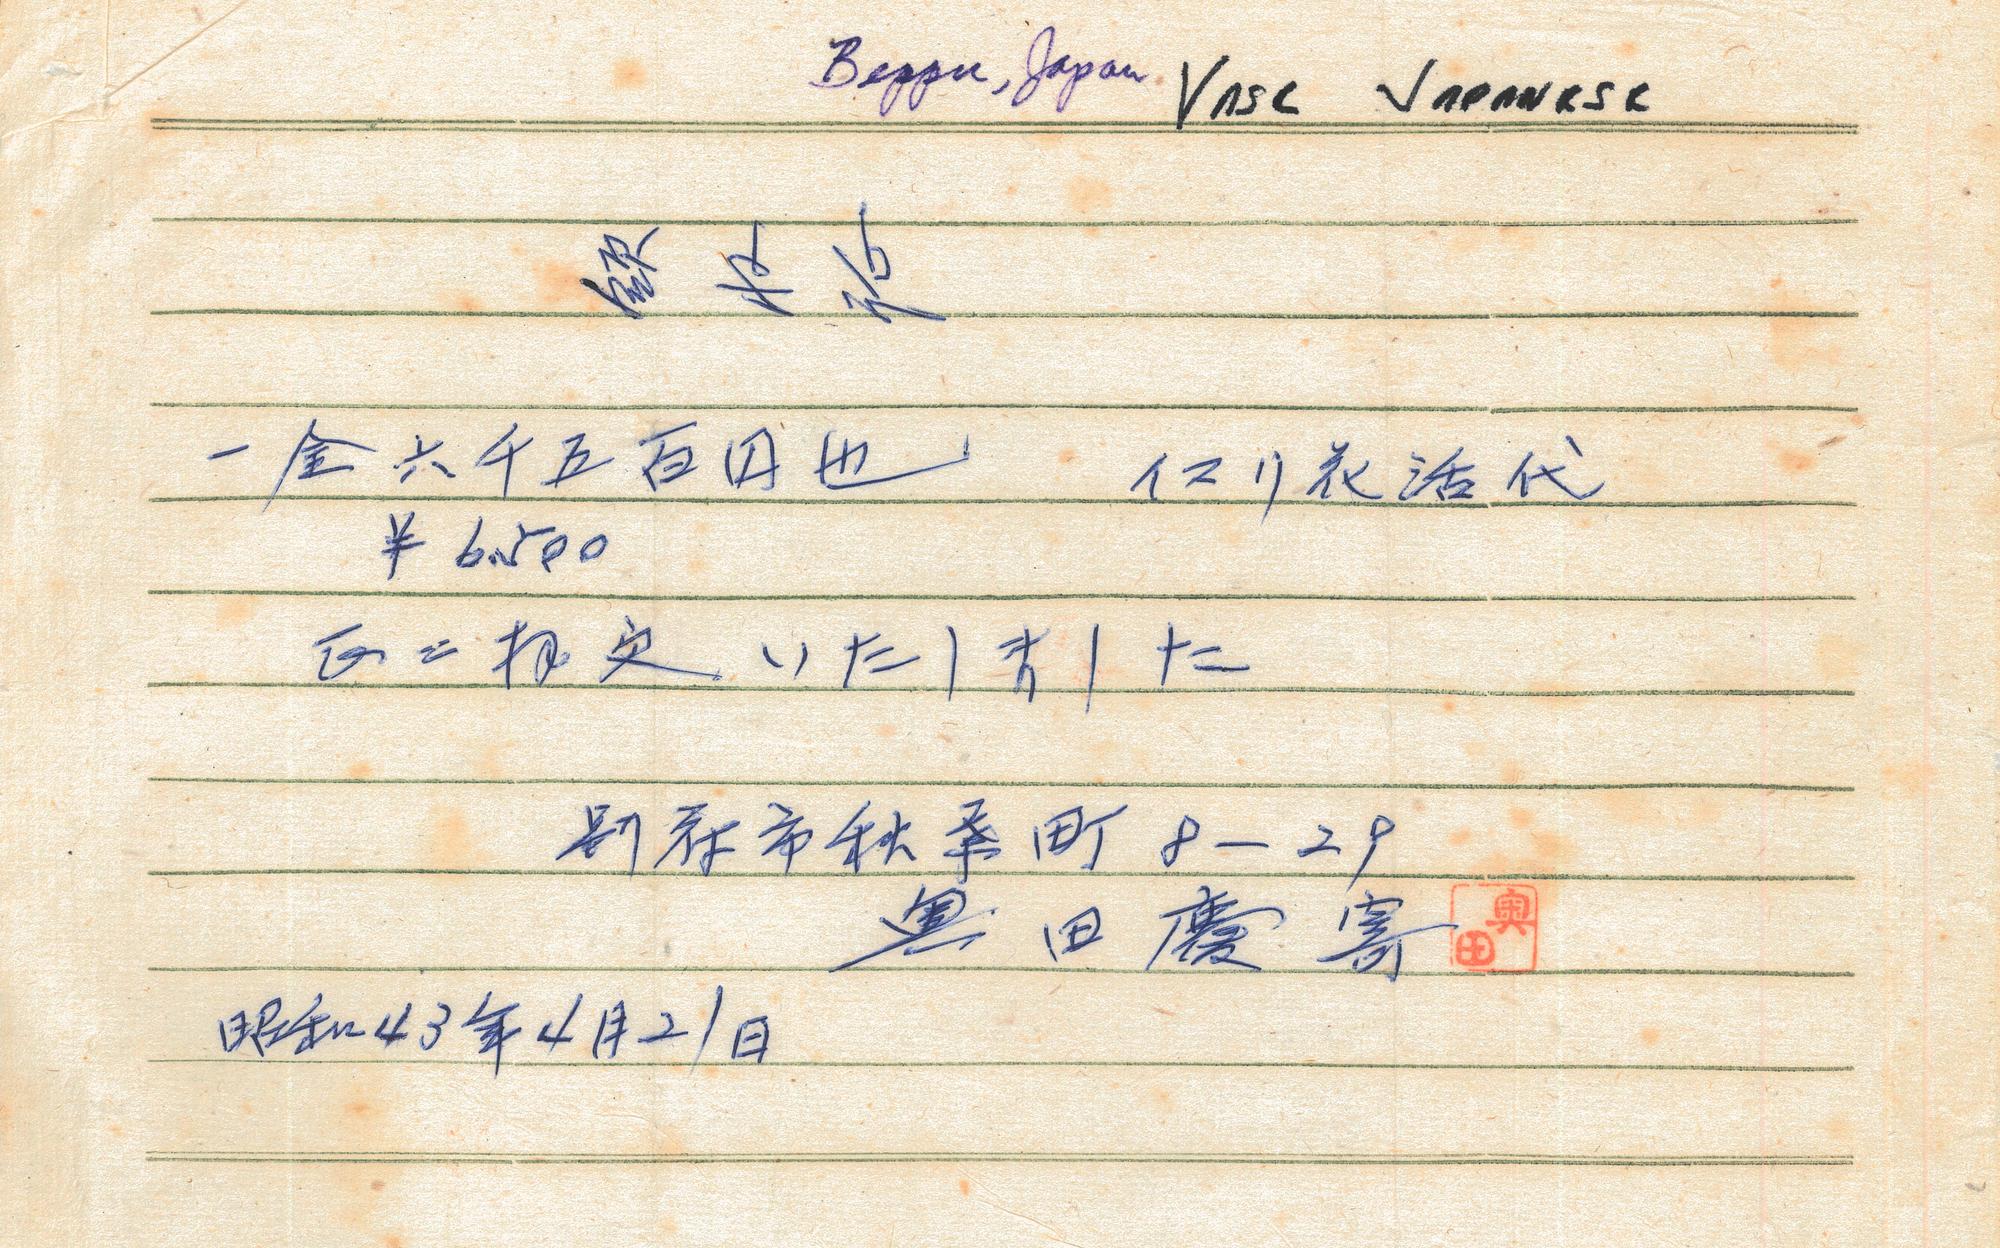 Beppu, Japan VASE JAPANESE
領収証
一金六千五百円也 イスリ花活代
¥6.500
正ニ領定いたしました
別府市秋葉町8-29
奥田慶寄 奥田
昭和43年4月21日